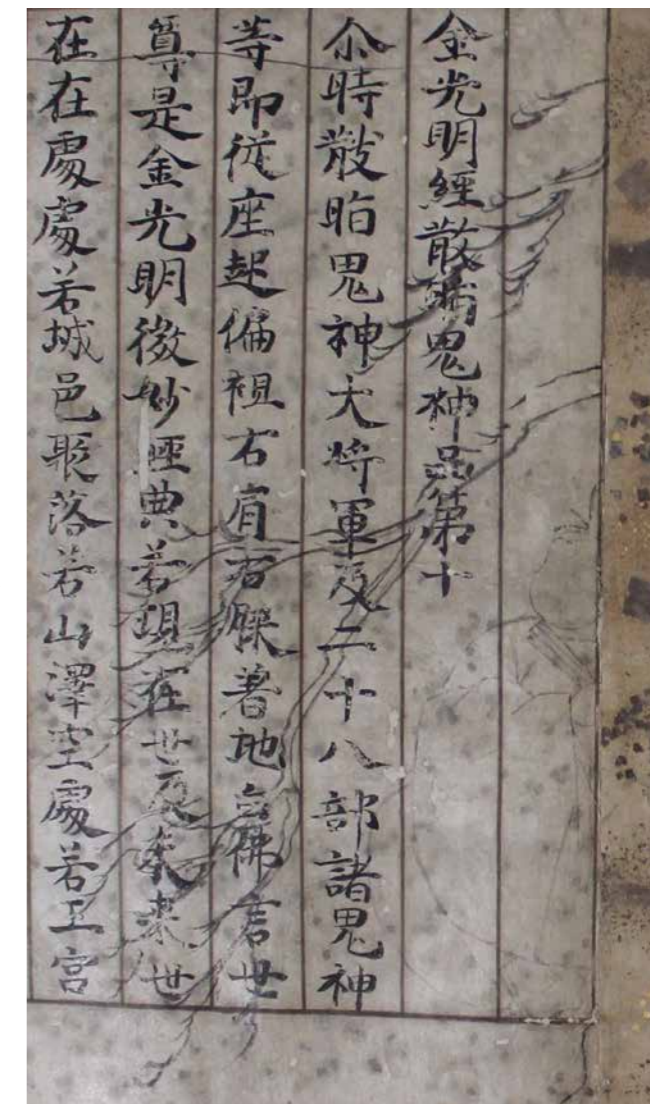 金光明經散脂鬼神品第十
尒時散脂鬼神大將軍及二十八部諸鬼神
等即從座起偏袒右肩右膝著地白佛言世
尊是金光明微妙經典若現在世及未來世
在在處處若城邑聚落若山澤空處若王宮